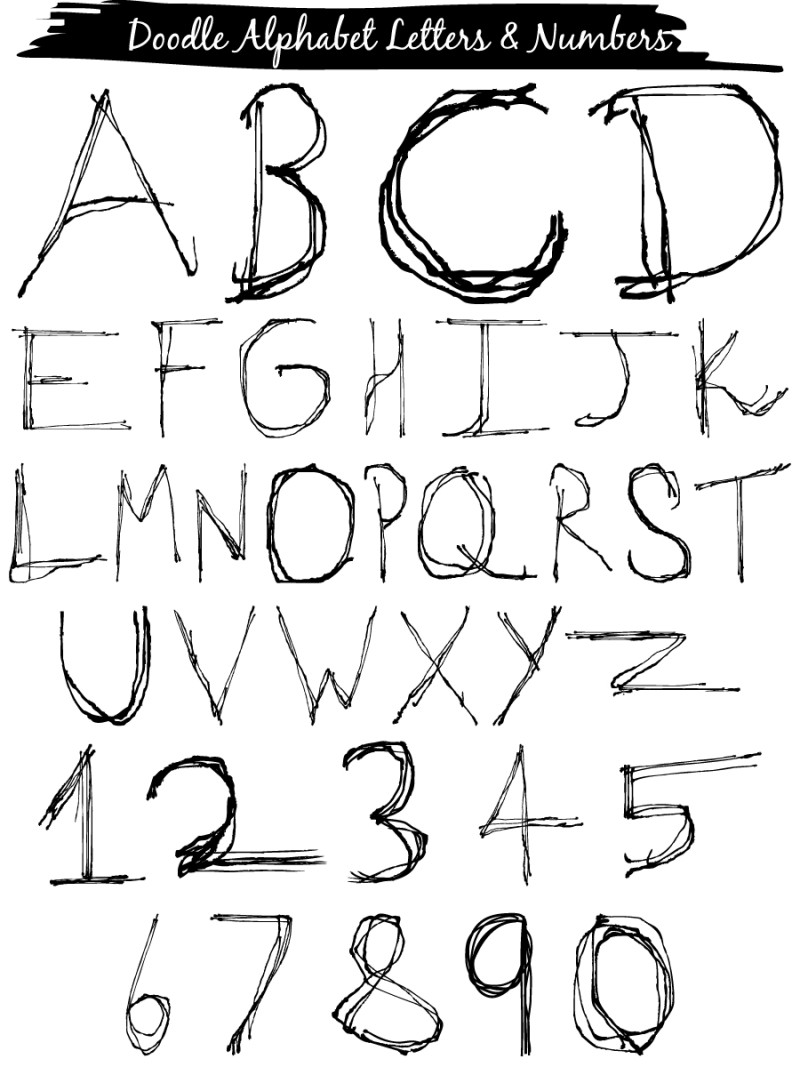 Doodle Alphabet Letters & Numbers
A B C D
E F G H I J K
L M N O P Q R S T
U V W X Y Z
1 2 3 4 5
6 7 8 9 0